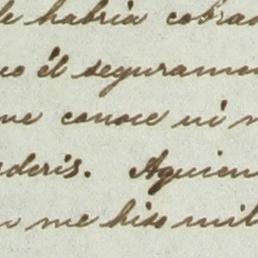 le habria cobra
no él segurame
ue conoce ni
deris. Aquien
me hiso mil